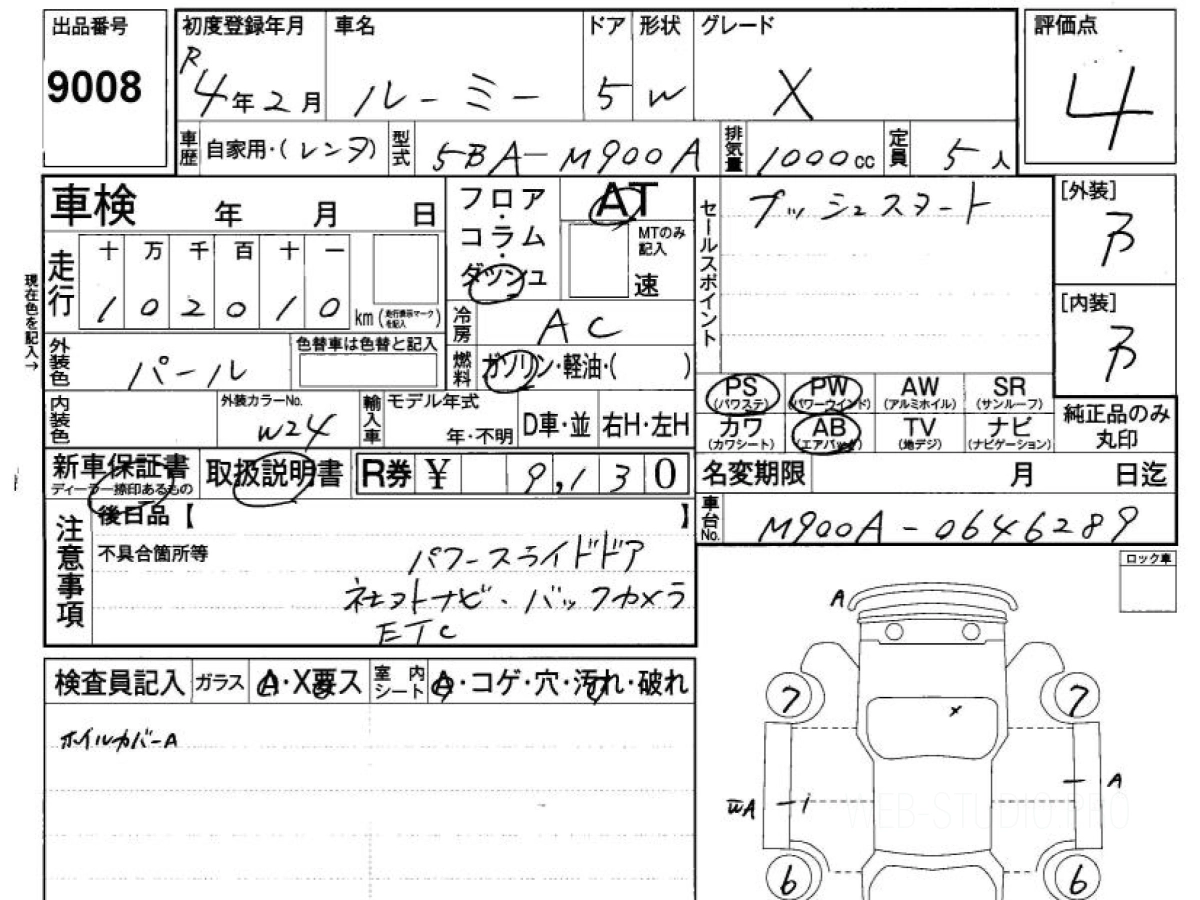 出品番号
9008
初度登録年月 車名 ドア 形状 グレード
R4年2月 ルーミー 5 W X
車歴 自家用・(レンタ) 型式 5BA-M900A 排気量 1000cc 定員 5人
評価点
4
車検 年 月 日
走行 十 万 千 百 十 一
1 0 2 0 1 0 km(走行表示マークを記入)
現在色を記入→
外装色 パール 色替車は色替と記入
フロア・コラム・ダッシュ
AT
MTのみ記入
速
冷房 AC
燃料 ガソリン・軽油・( )
セールスポイント
プッシュスタート
[外装]
B
[内装]
B
内装色 外装カラーNo. W24 輸入車 モデル年式 年・不明 D車・並 右H・左H
PS (パワステ) PW (パワーウインド) AW (アルミホイル) SR (サンルーフ)
カワ (カワシート) AB (エアバック) TV (地デジ) ナビ (ナビゲーション)
純正品のみ丸印
新車保証書 ディーラー捺印あるもの 取扱説明書 R券 ¥ 9,130
名変期限 月 日迄
車台No. M900A-0646289
注意事項
後日品【 】
不具合箇所等 パワースライドドア
社外ナビ・バックカメラ
ETC
ロック車
検査員記入 ガラス A・X要ス 室内シート A・コゲ・穴・汚れ・破れ
ホイルカバーA
A
7 7
x
A
A
6 6
WEB-STUDIO.PRO